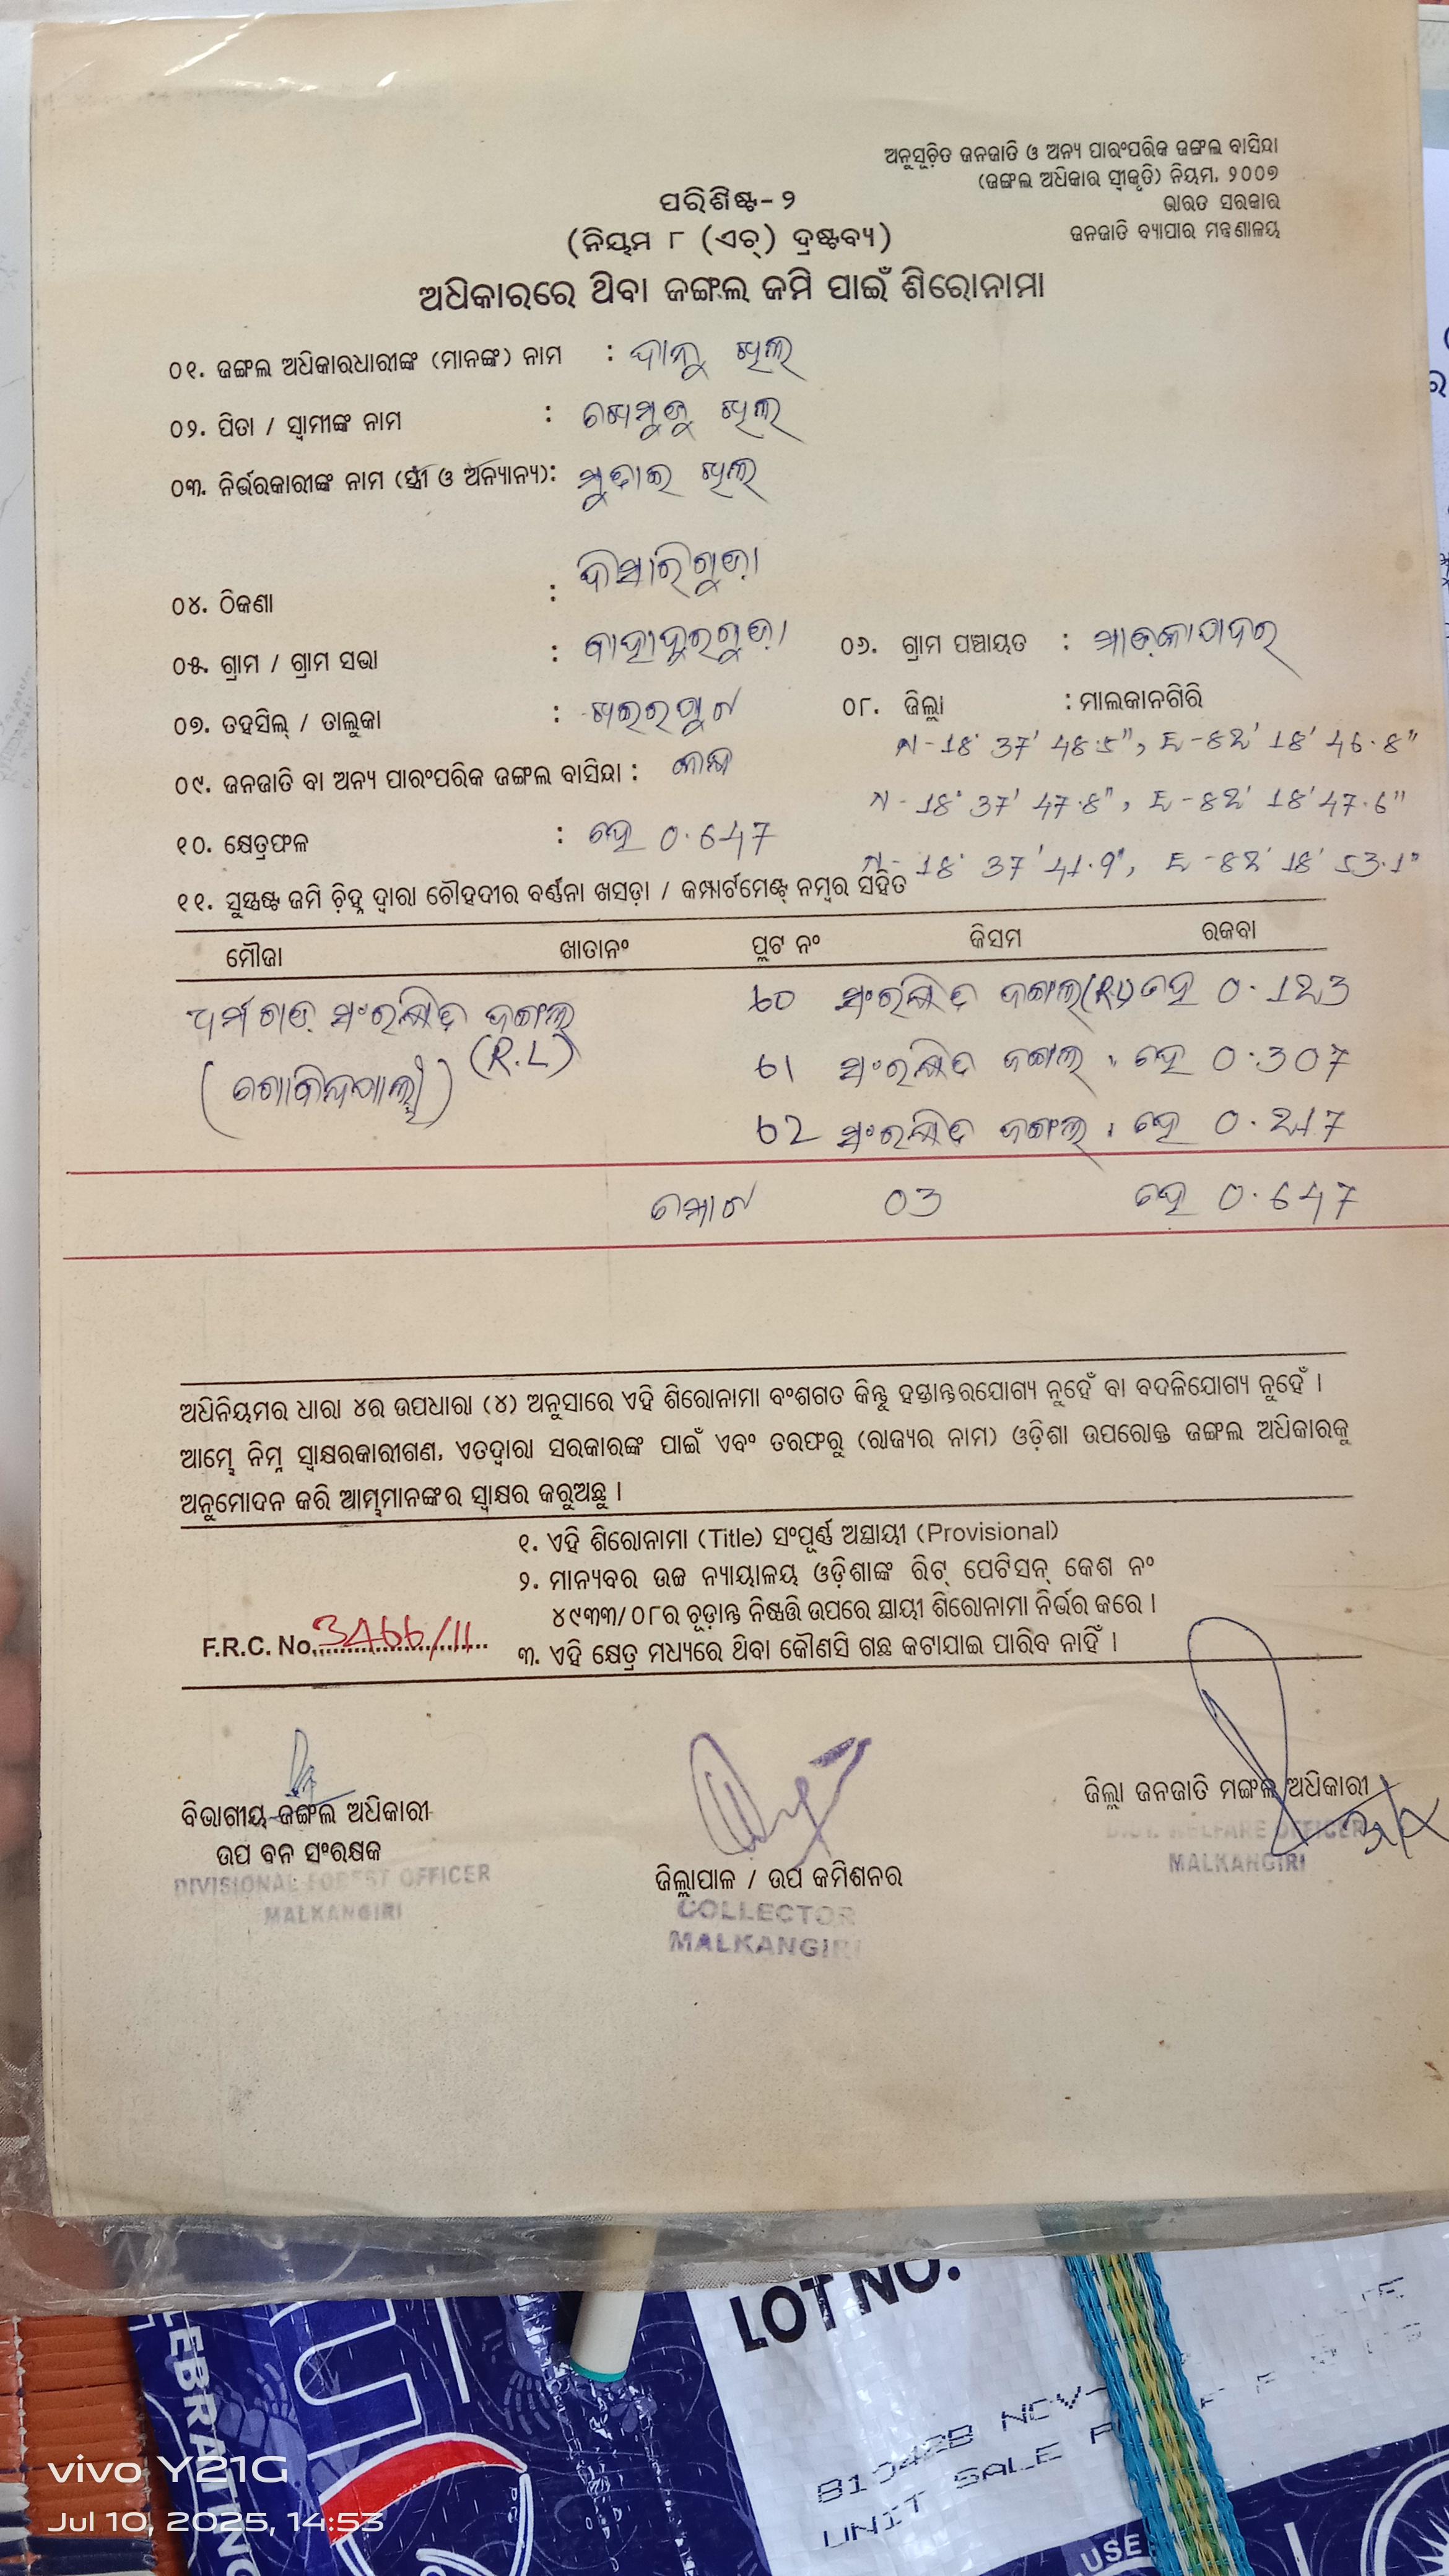 ଅନୁସୂଚିତ ଜନଜାତି ଓ ଅନ୍ୟ ପାରଂପରିକ ଜଙ୍ଗଲ ବାସିନ୍ଦା
(ଜଙ୍ଗଲ ଅଧିକାର ସ୍ୱୀକୃତି) ନିୟମ, ୨୦୦୭
ଭାରତ ସରକାର
ଜନଜାତି ବ୍ୟାପାର ମନ୍ତ୍ରଣାଳୟ
ପରିଶିଷ୍ଟ- ୨
(ନିୟମ ୮ (ଏଚ୍) ଦ୍ରଷ୍ଟବ୍ୟ)
ଅଧିକାରରେ ଥିବା ଜଙ୍ଗଲ ଜମି ପାଇଁ ଶିରୋନାମା
୦୧. ଜଙ୍ଗଲ ଅଧିକାରଧାରୀଙ୍କ (ମାନଙ୍କ) ନାମ : ଦାନୁ ଖିଲ
୦୨. ପିତା / ସ୍ୱାମୀଙ୍କ ନାମ : ଖିଲ
୦୩. ନିର୍ଭରକାରୀଙ୍କ ନାମ (ସ୍ତ୍ରୀ ଓ ଅନ୍ୟାନ୍ୟ): ଖିଲ
୦୪. ଠିକଣା : ଦିସାରିଗୁଡ଼ା
୦୫. ଗ୍ରାମ / ଗ୍ରାମ ସଭା : ବାହାଦୁରଗୁଡ଼ା ୦୬. ଗ୍ରାମ ପଞ୍ଚାୟତ : ମାଡ଼କାପଦର
୦୭. ତହସିଲ୍ / ତାଲୁକା : ଖଇରପୁଟ ୦୮. ଜିଲ୍ଲା : ମାଲକାନଗିରି
N-18° 37' 48.5", E-82° 18' 46.8"
୦୯. ଜନଜାତି ବା ଅନ୍ୟ ପାରଂପରିକ ଜଙ୍ଗଲ ବାସିନ୍ଦା :
N-18° 37' 47.8", E-82° 18' 47.6"
୧୦. କ୍ଷେତ୍ରଫଳ : ହେ 0.647
N-18° 37' 41.9", E-82° 18' 53.1"
୧୧. ସୁସ୍ପଷ୍ଟ ଜମି ଚିହ୍ନ ଦ୍ୱାରା ଚୌହଦୀର ବର୍ଣ୍ଣନା ଖସଡ଼ା / କମ୍ପାର୍ଟମେଣ୍ଟ୍ ନମ୍ବର ସହିତ
ମୌଜା ଖାତାନଂ ପ୍ଲଟ ନଂ କିସମ ରକବା
ଧର୍ମଗଡ଼ ସଂରକ୍ଷିତ ଜଙ୍ଗଲ 60 ସଂରକ୍ଷିତ ଜଙ୍ଗଲ(RL) ହେ 0.123
(R.L)
(ଗୋବିନ୍ଦପାଲ୍ଲୀ) 61 ସଂରକ୍ଷିତ ଜଙ୍ଗଲ , ହେ 0.307
62 ସଂରକ୍ଷିତ ଜଙ୍ଗଲ , ହେ 0.217
ମୋଟ 03 ହେ 0.647
ଅଧିନିୟମର ଧାରା ୪ର ଉପଧାରା (୪) ଅନୁସାରେ ଏହି ଶିରୋନାମା ବଂଶଗତ କିନ୍ତୁ ହସ୍ତାନ୍ତରଯୋଗ୍ୟ ନୁହେଁ ବା ବଦଳିଯୋଗ୍ୟ ନୁହେଁ ।
ଆମ୍ଭେ ନିମ୍ନ ସ୍ୱାକ୍ଷରକାରୀଗଣ, ଏତଦ୍ୱାରା ସରକାରଙ୍କ ପାଇଁ ଏବଂ ତରଫରୁ (ରାଜ୍ୟର ନାମ) ଓଡ଼ିଶା ଉପରୋକ୍ତ ଜଙ୍ଗଲ ଅଧିକାରକୁ
ଅନୁମୋଦନ କରି ଆମ୍ଭମାନଙ୍କର ସ୍ୱାକ୍ଷର କରୁଅଛୁ ।
୧. ଏହି ଶିରୋନାମା (Title) ସଂପୂର୍ଣ୍ଣ ଅସ୍ଥାୟୀ (Provisional)
୨. ମାନ୍ୟବର ଉଚ୍ଚ ନ୍ୟାୟାଳୟ ଓଡ଼ିଶାଙ୍କ ରିଟ୍ ପେଟିସନ୍ କେଶ ନଂ
୪୯୩୩/୦୮ର ଚୂଡ଼ାନ୍ତ ନିଷ୍ପତ୍ତି ଉପରେ ସ୍ଥାୟୀ ଶିରୋନାମା ନିର୍ଭର କରେ ।
F.R.C. No. 3466/11
୩. ଏହି କ୍ଷେତ୍ର ମଧ୍ୟରେ ଥିବା କୌଣସି ଗଛ କଟାଯାଇ ପାରିବ ନାହିଁ ।
ବିଭାଗୀୟ ଜଙ୍ଗଲ ଅଧିକାରୀ
ଉପ ବନ ସଂରକ୍ଷକ
DIVISIONAL FOREST OFFICER
MALKANGIRI
ଜିଲ୍ଲାପାଳ / ଉପ କମିଶନର
COLLECTOR
MALKANGIRI
ଜିଲ୍ଲା ଜନଜାତି ମଙ୍ଗଳ ଅଧିକାରୀ
DIST. WELFARE OFFICER
MALKANGIRI
LOT NO.
UNIT SALE
USE
vivo Y21G
Jul 10, 2025, 14:53